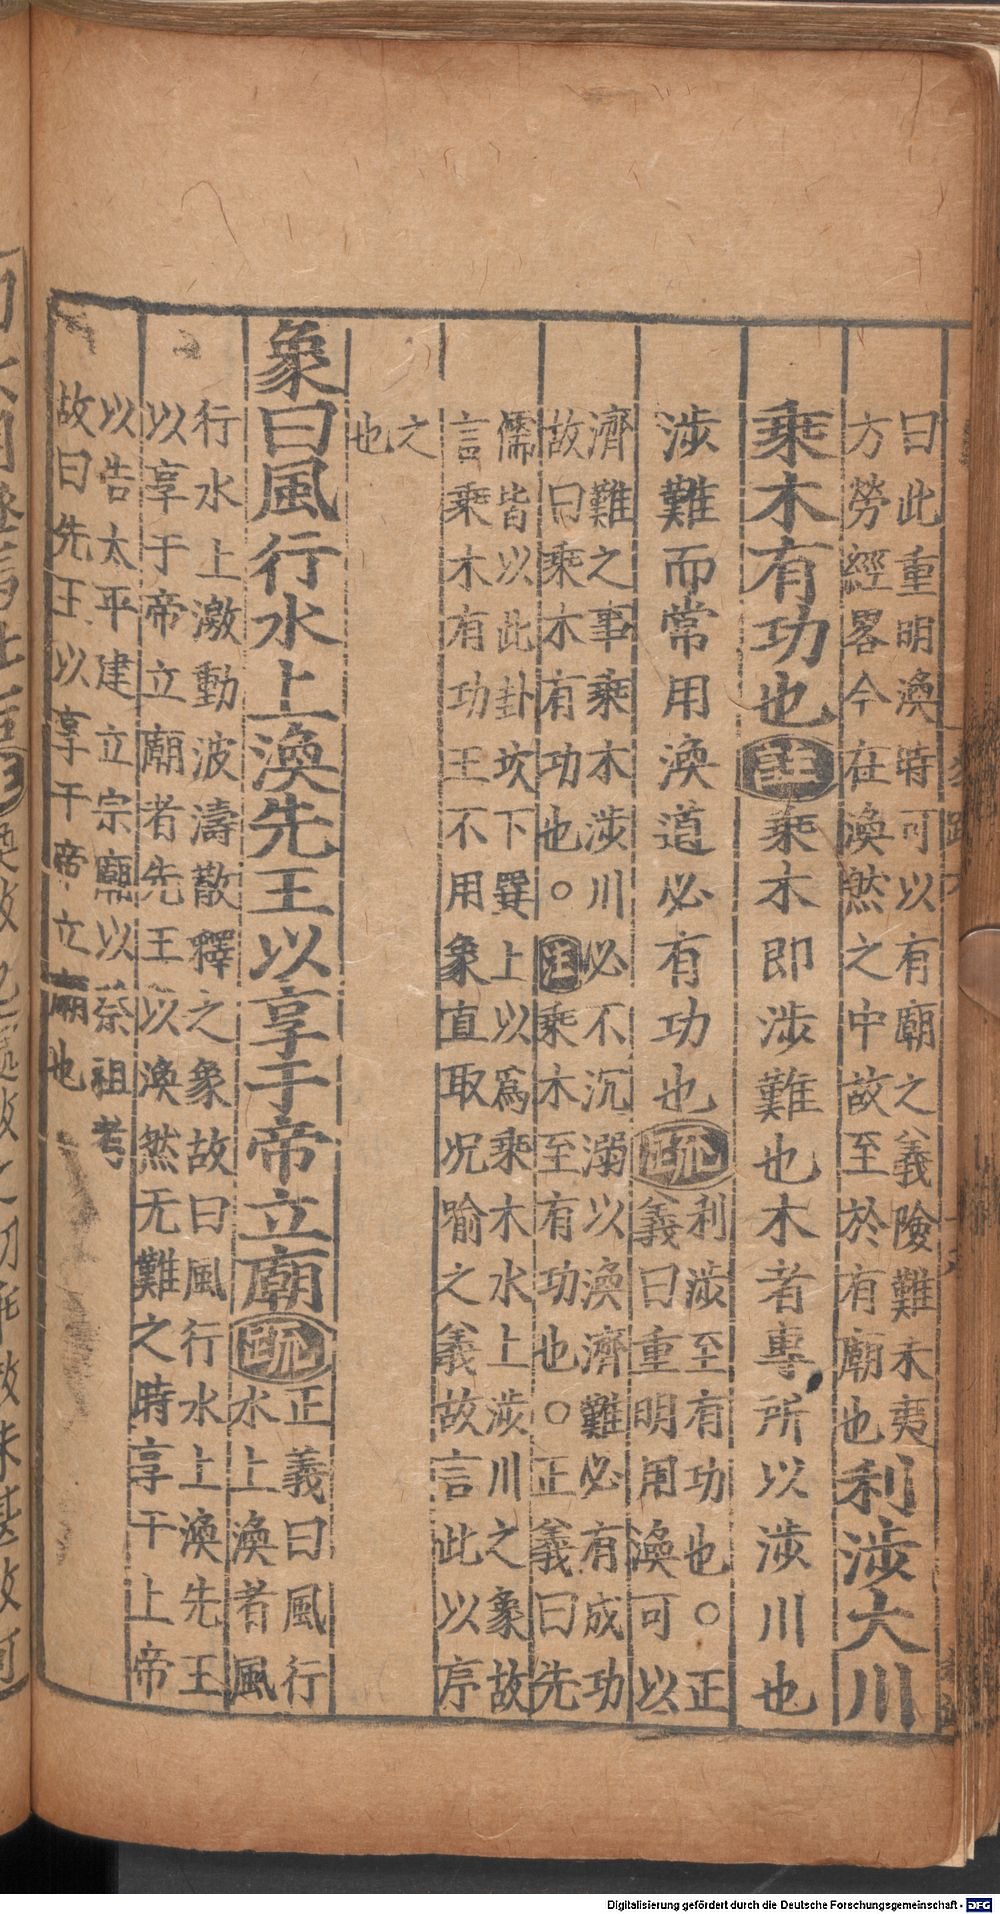 曰此重明渙時可以有廟之義險難未夷
方勞經畧今在渙然之中故至於有廟也利涉大川
乘木有功也註乘木即涉難也木者專所以涉川也
涉難而常用渙道必有功也疏利涉至有功也○正
義曰重明用渙可以
濟難之事乘木涉川必不沉溺以渙濟難必有成功
故曰乘木有功也○注乘木至有功也○正義曰先
儒皆以此卦坎下巽上以爲乘木水上涉川之象故
言乘木有功王不用象直取况喻之義故言此以序
之
也
象曰風行水上渙先王以享于帝立廟疏正義曰風行
水上渙者風
行水上激動波濤散釋之象故曰風行水上渙先王
以享于帝立廟者先王以渙然无難之時享于上帝
以告太平建立宗廟以祭祖考
故曰先王以享于帝立廟也
Digitalisierung gefördert durch die Deutsche Forschungsgemeinschaft - DFG